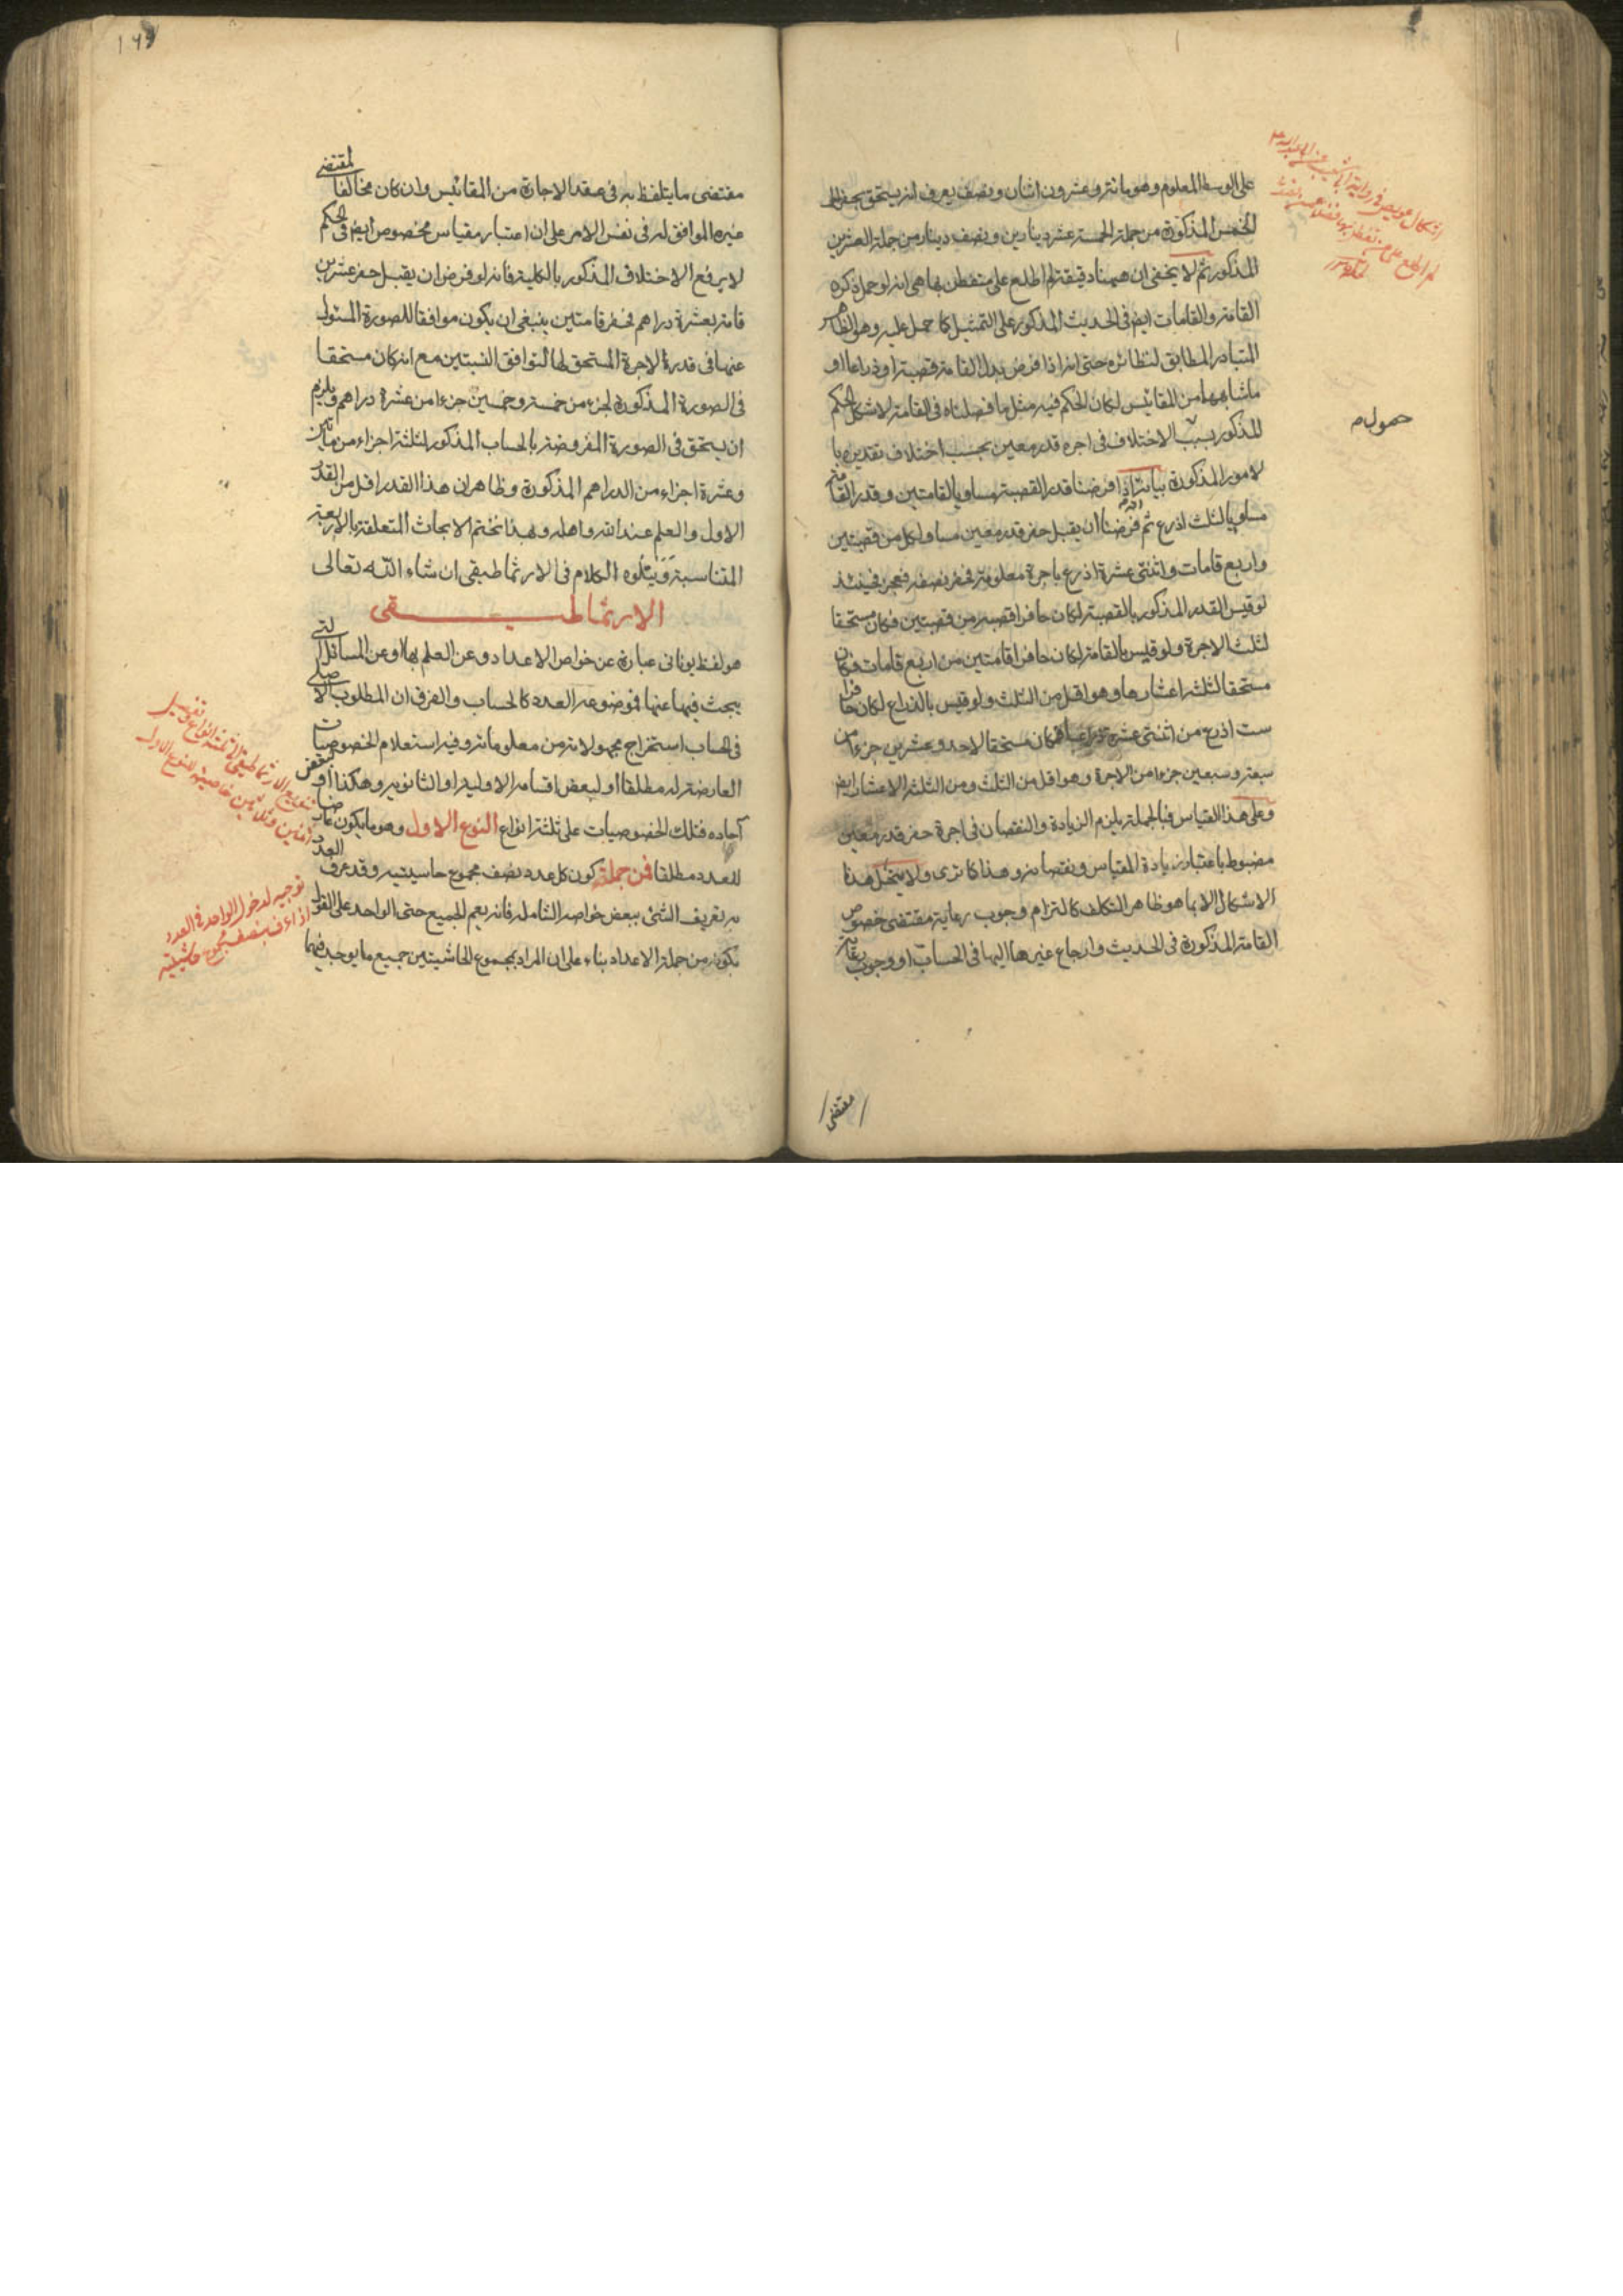 على الوسط المعلوم وهو مائة وعشرون اثنان ونصف يعرف انه يستحق بحفر
الخمس المذكورة من جملة الخمسة عشر دينارين ونصف دينار من جملة العشرين
المذكور ثم لا يخفى ان ههنا دقيقة لم اطلع على متفطن بها هي انه لو حمل ذكره
القامة والقامات ايض في الحديث المذكور على التمثيل كما حمل عليه وهو الظاهر
المتبادر المطابق لنظائره حتى انه اذا فرض بدل القامة قصبة او ذراعا او
ماشابهها من المقائيس لكان الحكم فيه مثل ما فصلناه في القامة لاشكل الحكم
المذكور بسبب الاختلاف في اجره قدر معين بحسب اختلاف تقديره با
لامور المذكورة بيانه اذا فرضنا قدر القصبة مساويا لقامتين وقدر القامة
مساويا لثلث اذرع ثم فرضنا ان يقبل حفر قدر معين مساو لكل من قصبتين
واربع قامات واثنتى عشرة اذرع باجرة معلومة فحفر نصفه فعجز فحينئذ
لو قيس القدر المذكور بالقصبة لكان حافرا قصبة من قصبتين فكان مستحقا
لثلث الاجرة ولو قيس بالقامة لكان حافرا قامتين من اربع قامات فكان
مستحقا لثلثه اعشارها وهو اقل من الثلث ولو قيس بالذراع لكان حافرا
ست اذرع من اثنتى عشرة ذراعا فكان مستحقا لاحد وعشرين جزءا من
سبعة وسبعين جزءا من الاجرة وهو اقل من الثلث ومن الثلثه الاعشار ايض
وعلى هذا القياس فبالجملة يلزم الزيادة والنقصان في اجرة حفر قدر معين
مضبوط باعتبار زيادة المقياس ونقصانه وهذا كما ترى ولا ينحل هذا
الاشكال الا بما هو ظاهر التكلف كالتزام وجوب رعاية مقتضى خصوص
القامة المذكورة في الحديث وارجاع غيرها اليها في الحساب او وجوب رعاية
مقتضى
حصول م
مقتضى ما يتلفظ به في عقد الاجارة من المقائيس وان كان مخالفا لمقتضى
غيره الموافق له في نفس الامر على ان اعتبار مقياس مخصوص ايض في الحكم
لا يرفع الاختلاف المذكور بالكلية فانه لو فرض ان يقبل حفر عشرين
قامة بعشرة دراهم فحفر قامتين ينبغي ان يكون موافقا للصورة المسئول
عنها في قدر الاجرة المستحق لها لتوافق النسبتين مع انه كان مستحقا
في الصورة المذكورة لجزء من خمسة وخمسين جزءا من عشرة دراهم ويلزم
ان يستحق في الصورة المفروضة بالحساب المذكور لثلثة اجزاء من مأتين
وعشرة اجزاء من الدراهم المذكورة وظاهر ان هذا القدر اقل من القدر
الاول والعلم عند الله واهله وبهذا نختم الابحاث المتعلقة بالاربعة
المتناسبة ويتلوه الكلام في الارثماطيقى ان شاء الله تعالى
الارثماطيقى
هو لفظ يونانى عبارة عن خواص الاعداد وعن العلم بها او عن المسائل التي
يبحث فيها عنها فموضوعه العدد كالحساب والفرق ان المطلوب الاصلي
في الحساب استخراج مجهولاته من معلوماته وفيه استعلام الخصوصيات
العارضة له مطلقا او لبعض اقسامه الاولية او الثانويه وهكذا او لبعض
آحاده فتلك الخصوصيات على ثلثة انواع النوع الاول وهو ما يكون عارضا
للعدد مطلقا فمن جملة كون كل عدد نصف مجموع حاشيتيه وقد عرف العدد
به تعريف الشئ ببعض خواصه الشامله فانه يعم الجميع حتى الواحد على القول
بكونه من جملة الاعداد بناء على ان المراد بمجموع الحاشيتين جميع ما يوجد فيهما
توجيه لدخول الواحد في العدد
اذا عرف بنصف مجموع حاشيتيه